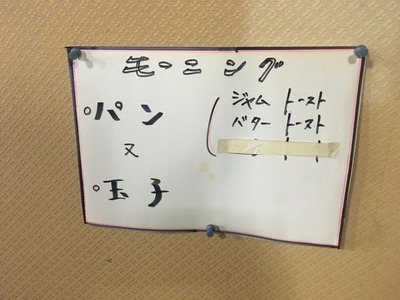 モーニング
パン
ジャム トースト
バター トースト
又
玉子